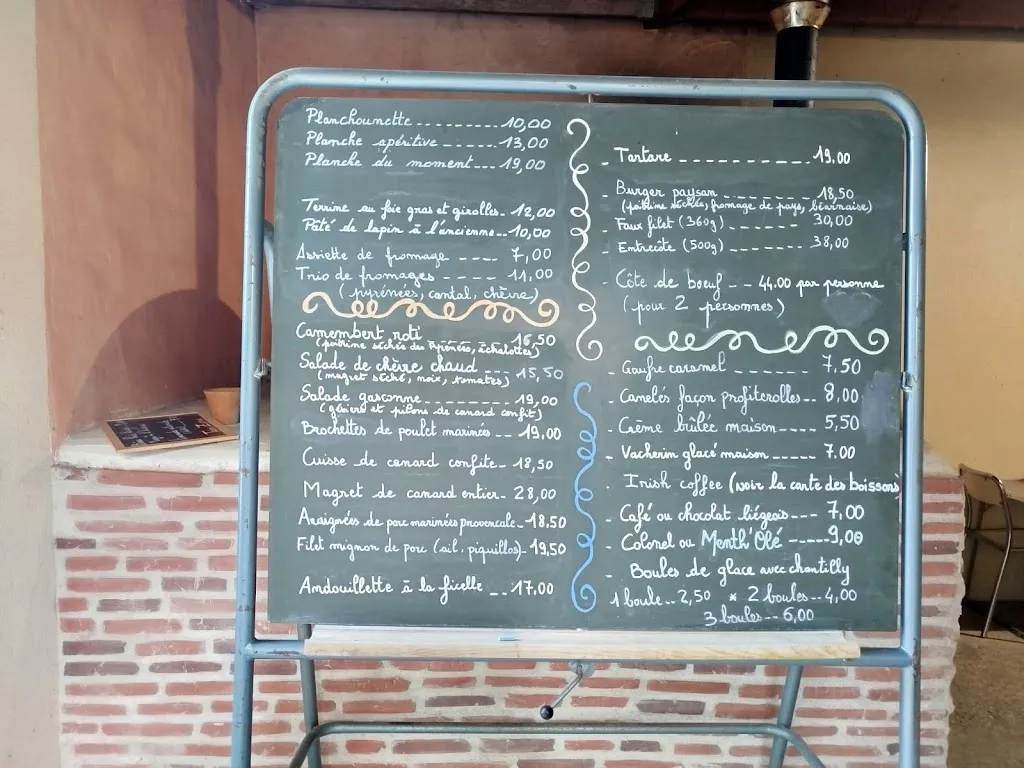 Planchounette 10,00
Planche apéritive 13,00
Planche du moment 19,00
Terrine au foie gras et girolles 12,00
Pâté de lapin à l'ancienne 10,00
Assiette de fromage 7,00
Trio de fromages 11,00
(pyrénées, cantal, chèvre)
Camembert roti 16,50
(poitrine séchée des Pyrénées, échalottes)
Salade de chèvre chaud 15,50
(magret séché, noix, tomates)
Salade gasconne 19,00
(gésiers et pilons de canard confit)
Brochettes de poulet marinées 19,00
Cuisse de canard confite 18,50
Magret de canard entier 28,00
Araignées de porc marinées provencale 18.50
Filet mignon de porc (ail, piquillos) 19,50
Andouillette à la ficelle 17.00
- Tartare 19.00
- Burger paysan 18,50
(poitrine séchée, fromage de pays, béarnaise)
- Faux filet (360g) 30,00
- Entrecôte (500g) 38,00
- Côte de bœuf 44,00 par personne
(pour 2 personnes)
- Gaufre caramel 7,50
- Canelés façon profiteroles 8,00
- Crème brûlée maison 5,50
- Vacherin glacé maison 7.00
- Irish coffee (voir la carte des boissons)
- Café ou chocolat liégeois 7,00
- Colonel ou Menth'Olé 9,00
- Boules de glace avec chantilly
1 boule 2,50 * 2 boules 4,00
3 boules 6,00